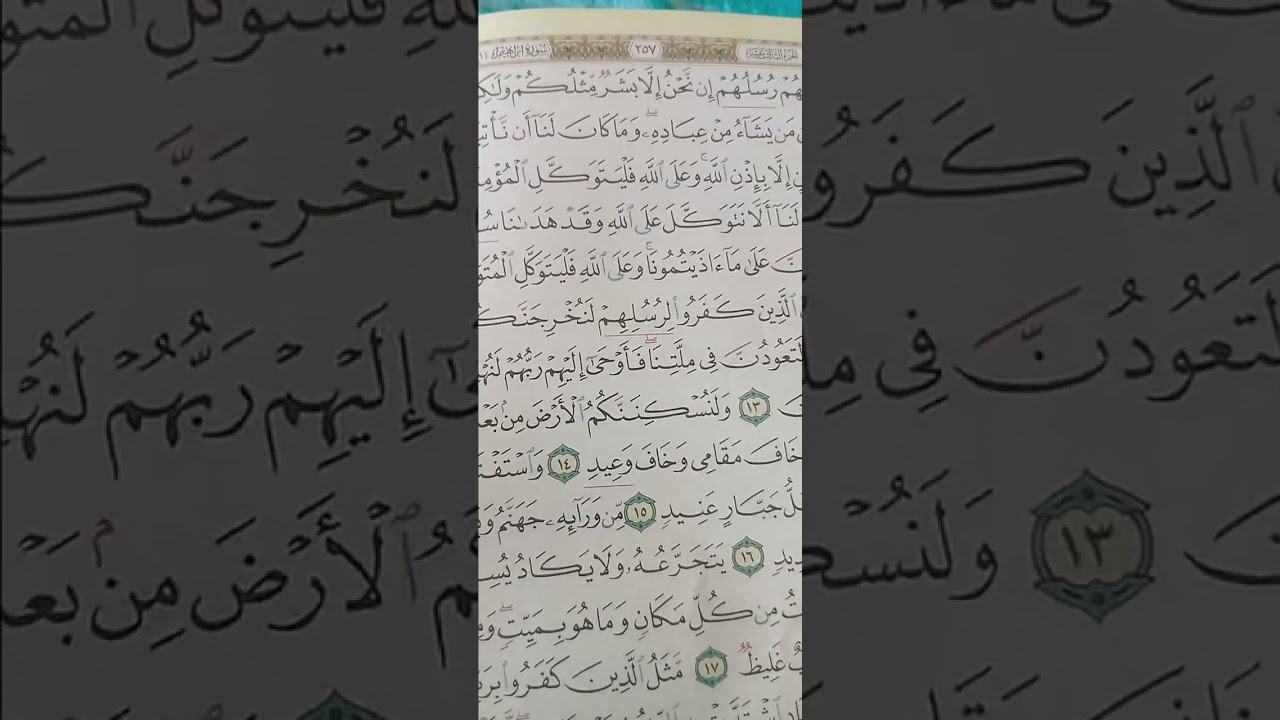 الجزء الثالث عشر ٢٥٧ سورة إبراهيم ١٤
رُسُلُهُمْ إِن نَّحْنُ إِلَّا بَشَرٌ مِّثْلُكُمْ
مَن يَشَآءُ مِنْ عِبَادِهِۦۖ وَمَا كَانَ لَنَآ أَن
إِلَّا بِإِذْنِ ٱللَّهِۚ وَعَلَى ٱللَّهِ فَلْيَتَوَكَّلِ
لَنَآ أَلَّا نَتَوَكَّلَ عَلَى ٱللَّهِ وَقَدْ هَدَىٰنَا
عَلَىٰ مَآ ءَاذَيْتُمُونَاۚ وَعَلَى ٱللَّهِ فَلْيَتَوَكَّلِ
ٱلَّذِينَ كَفَرُوا۟ لِرُسُلِهِمْ لَنُخْرِجَنَّكُ
لَتَعُودُنَّ فِى مِلَّتِنَاۖ فَأَوْحَىٰٓ إِلَيْهِمْ رَبُّهُمْ
١٣ وَلَنُسْكِنَنَّكُمُ ٱلْأَرْضَ مِنۢ
خَافَ مَقَامِى وَخَافَ وَعِيدِ ١٤
جَبَّارٍ عَنِيدٍ ١٥ مِّن وَرَآئِهِۦ جَهَنَّمُ
١٦ يَتَجَرَّعُهُۥ وَلَا يَكَادُ
مِن كُلِّ مَكَانٍ وَمَا هُوَ بِمَيِّتٍۖ
غَلِيظٌ ١٧ مَّثَلُ ٱلَّذِينَ كَفَرُوا۟